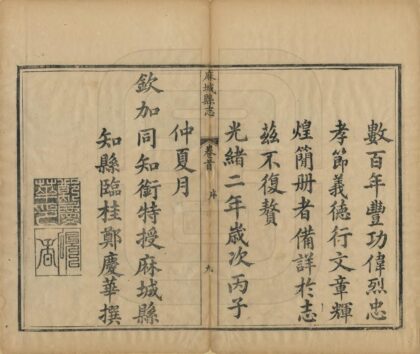 數百年豐功偉烈忠
孝節義德行文章輝
煌簡册者備詳於志
茲不復贅
光緒二年歲次丙子
麻城縣志
卷首
序
九
仲夏月
欽加同知銜特授麻城縣
知縣臨桂鄭慶華撰